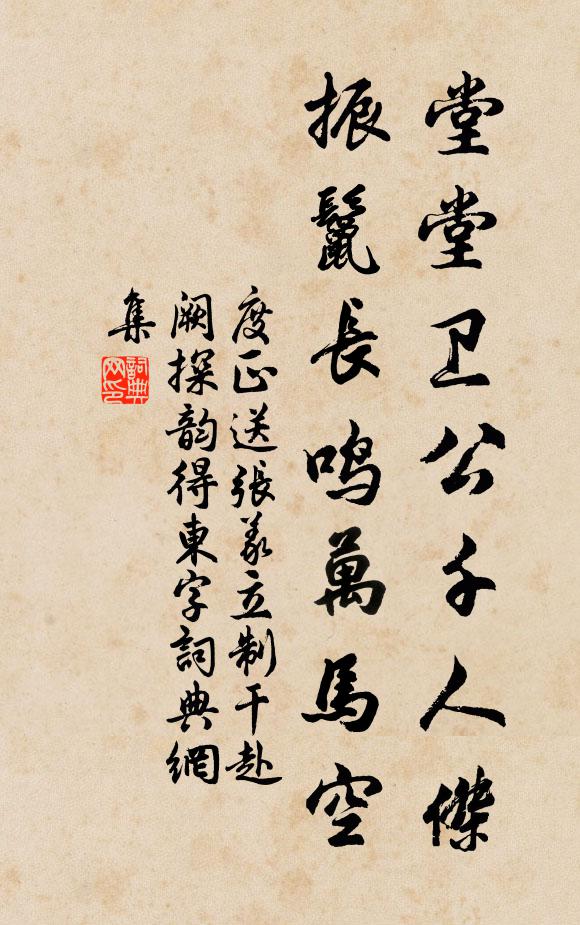 堂堂卫公千人傑
振鬣長鸣萬馬空
度正送張義立制干赴
阙探韵得東字詞典網
集
詞典
网印